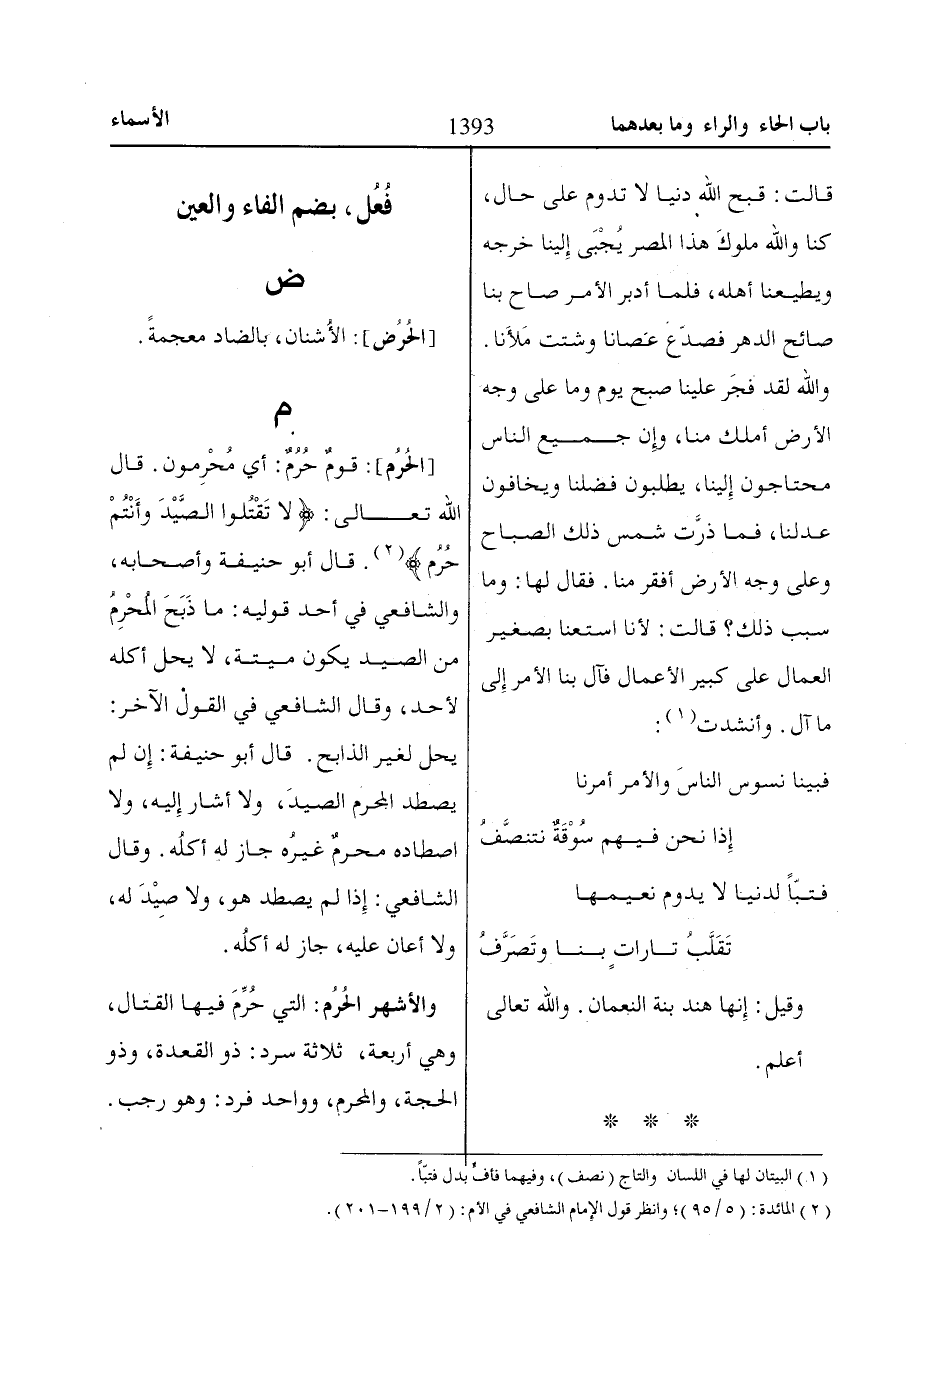 باب الحاء والراء وما بعدهما
1393
الأسماء
قالت: قبح الله دنيا لا تدوم على حال،
كنا والله ملوكَ هذا المصر يُجْبَى إِلينا خرجه
ويطيعنا أهله، فلما أدبر الأمر صاح بنا
صائح الدهر فصدّع عَصانا وشتت مَلأَنا.
والله لقد فجَر علينا صبح يوم وما على وجه
الأرض أملك منا، وإِن جميع الناس
محتاجون إِلينا، يطلبون فضلنا ويخافون
عدلنا، فما ذرَّت شمس ذلك الصباح
وعلى وجه الأرض أفقر منا. فقال لها: وما
سبب ذلك؟ قالت: لأنا استعنا بصغير
العمال على كبير الأعمال فآل بنا الأمر إِلى
ما آل. وأنشدت(١):
فبينا نسوس الناسَ والأمر أمرنا
إِذا نحن فيهم سُوْقَةٌ نتنصَّفُ
فتبّاً لدنيا لا يدوم نعيمها
تَقَلَّبُ تاراتٍ بنا وتَصَرَّفُ
وقيل: إِنها هند بنة النعمان. والله تعالى
أعلم.
* * *
فُعُل، بضم الفاء والعين
ض
[الحُرُض]: الأُشنان، بالضاد معجمةً.
م
[الحُرُم]: قومٌ حُرُمٌ: أي مُحْرِمون. قال
الله تعالى: ﴿لا تَقْتُلوا الصَّيْدَ وأَنْتُمْ
حُرُم﴾(٢). قال أبو حنيفة وأصحابه،
والشافعي في أحد قوليه: ما ذَبَحَ المُحْرِمُ
من الصيد يكون ميتة، لا يحل أكله
لأحد، وقال الشافعي في القولْ الآخر:
يحل لغير الذابح. قال أبو حنيفة: إِن لم
يصطد المحرم الصيدَ، ولا أشار إِليه، ولا
اصطاده محرمٌ غيرُه جاز له أكلُه. وقال
الشافعي: إِذا لم يصطد هو، ولا صِيْدَ له،
ولا أعان عليه، جاز له أكلُه.
والأشهر الحُرُم: التي حُرِّمَ فيها القتال،
وهي أربعة، ثلاثة سرد: ذو القعدة، وذو
الحجة، والمحرم، وواحد فرد: وهو رجب.
(١) البيتان لها في اللسان والتاج (نصف)، وفيهما فأفٌ بدل فتبّاً.
(٢) المائدة: (٩٥/٥)؛ وانظر قول الإمام الشافعي في الأم: (١٩٩/٢-٢٠١).